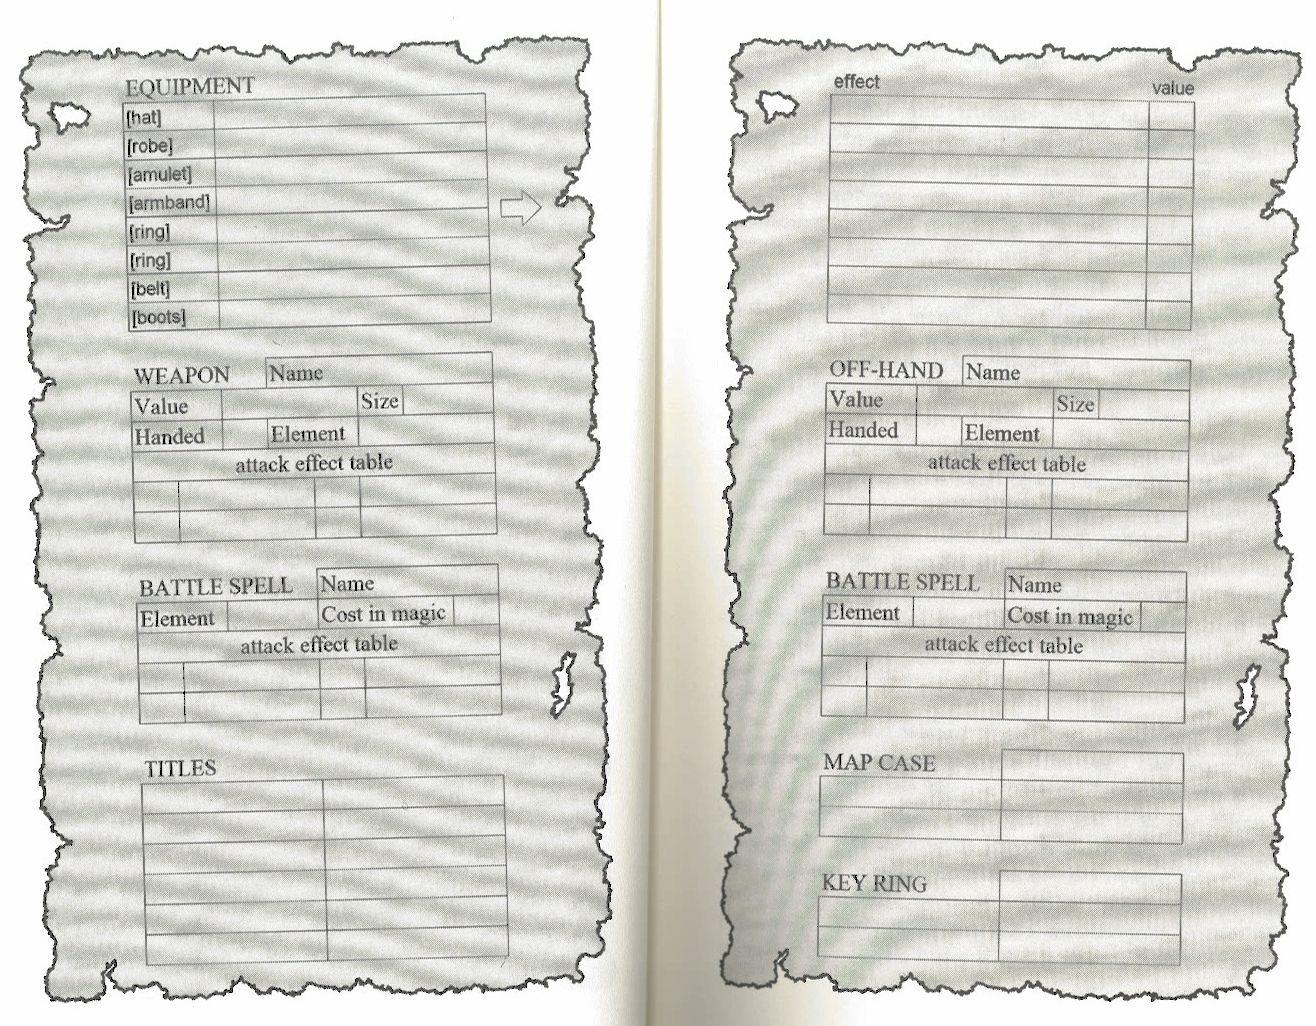 EQUIPMENT
[hat]
[robe]
[amulet]
[armband]
[ring]
[ring]
[belt]
[boots]
WEAPON Name
Value Size
Handed Element
attack effect table
BATTLE SPELL Name
Element Cost in magic
attack effect table
TITLES
effect value
OFF-HAND Name
Value Size
Handed Element
attack effect table
BATTLE SPELL Name
Element Cost in magic
attack effect table
MAP CASE
KEY RING